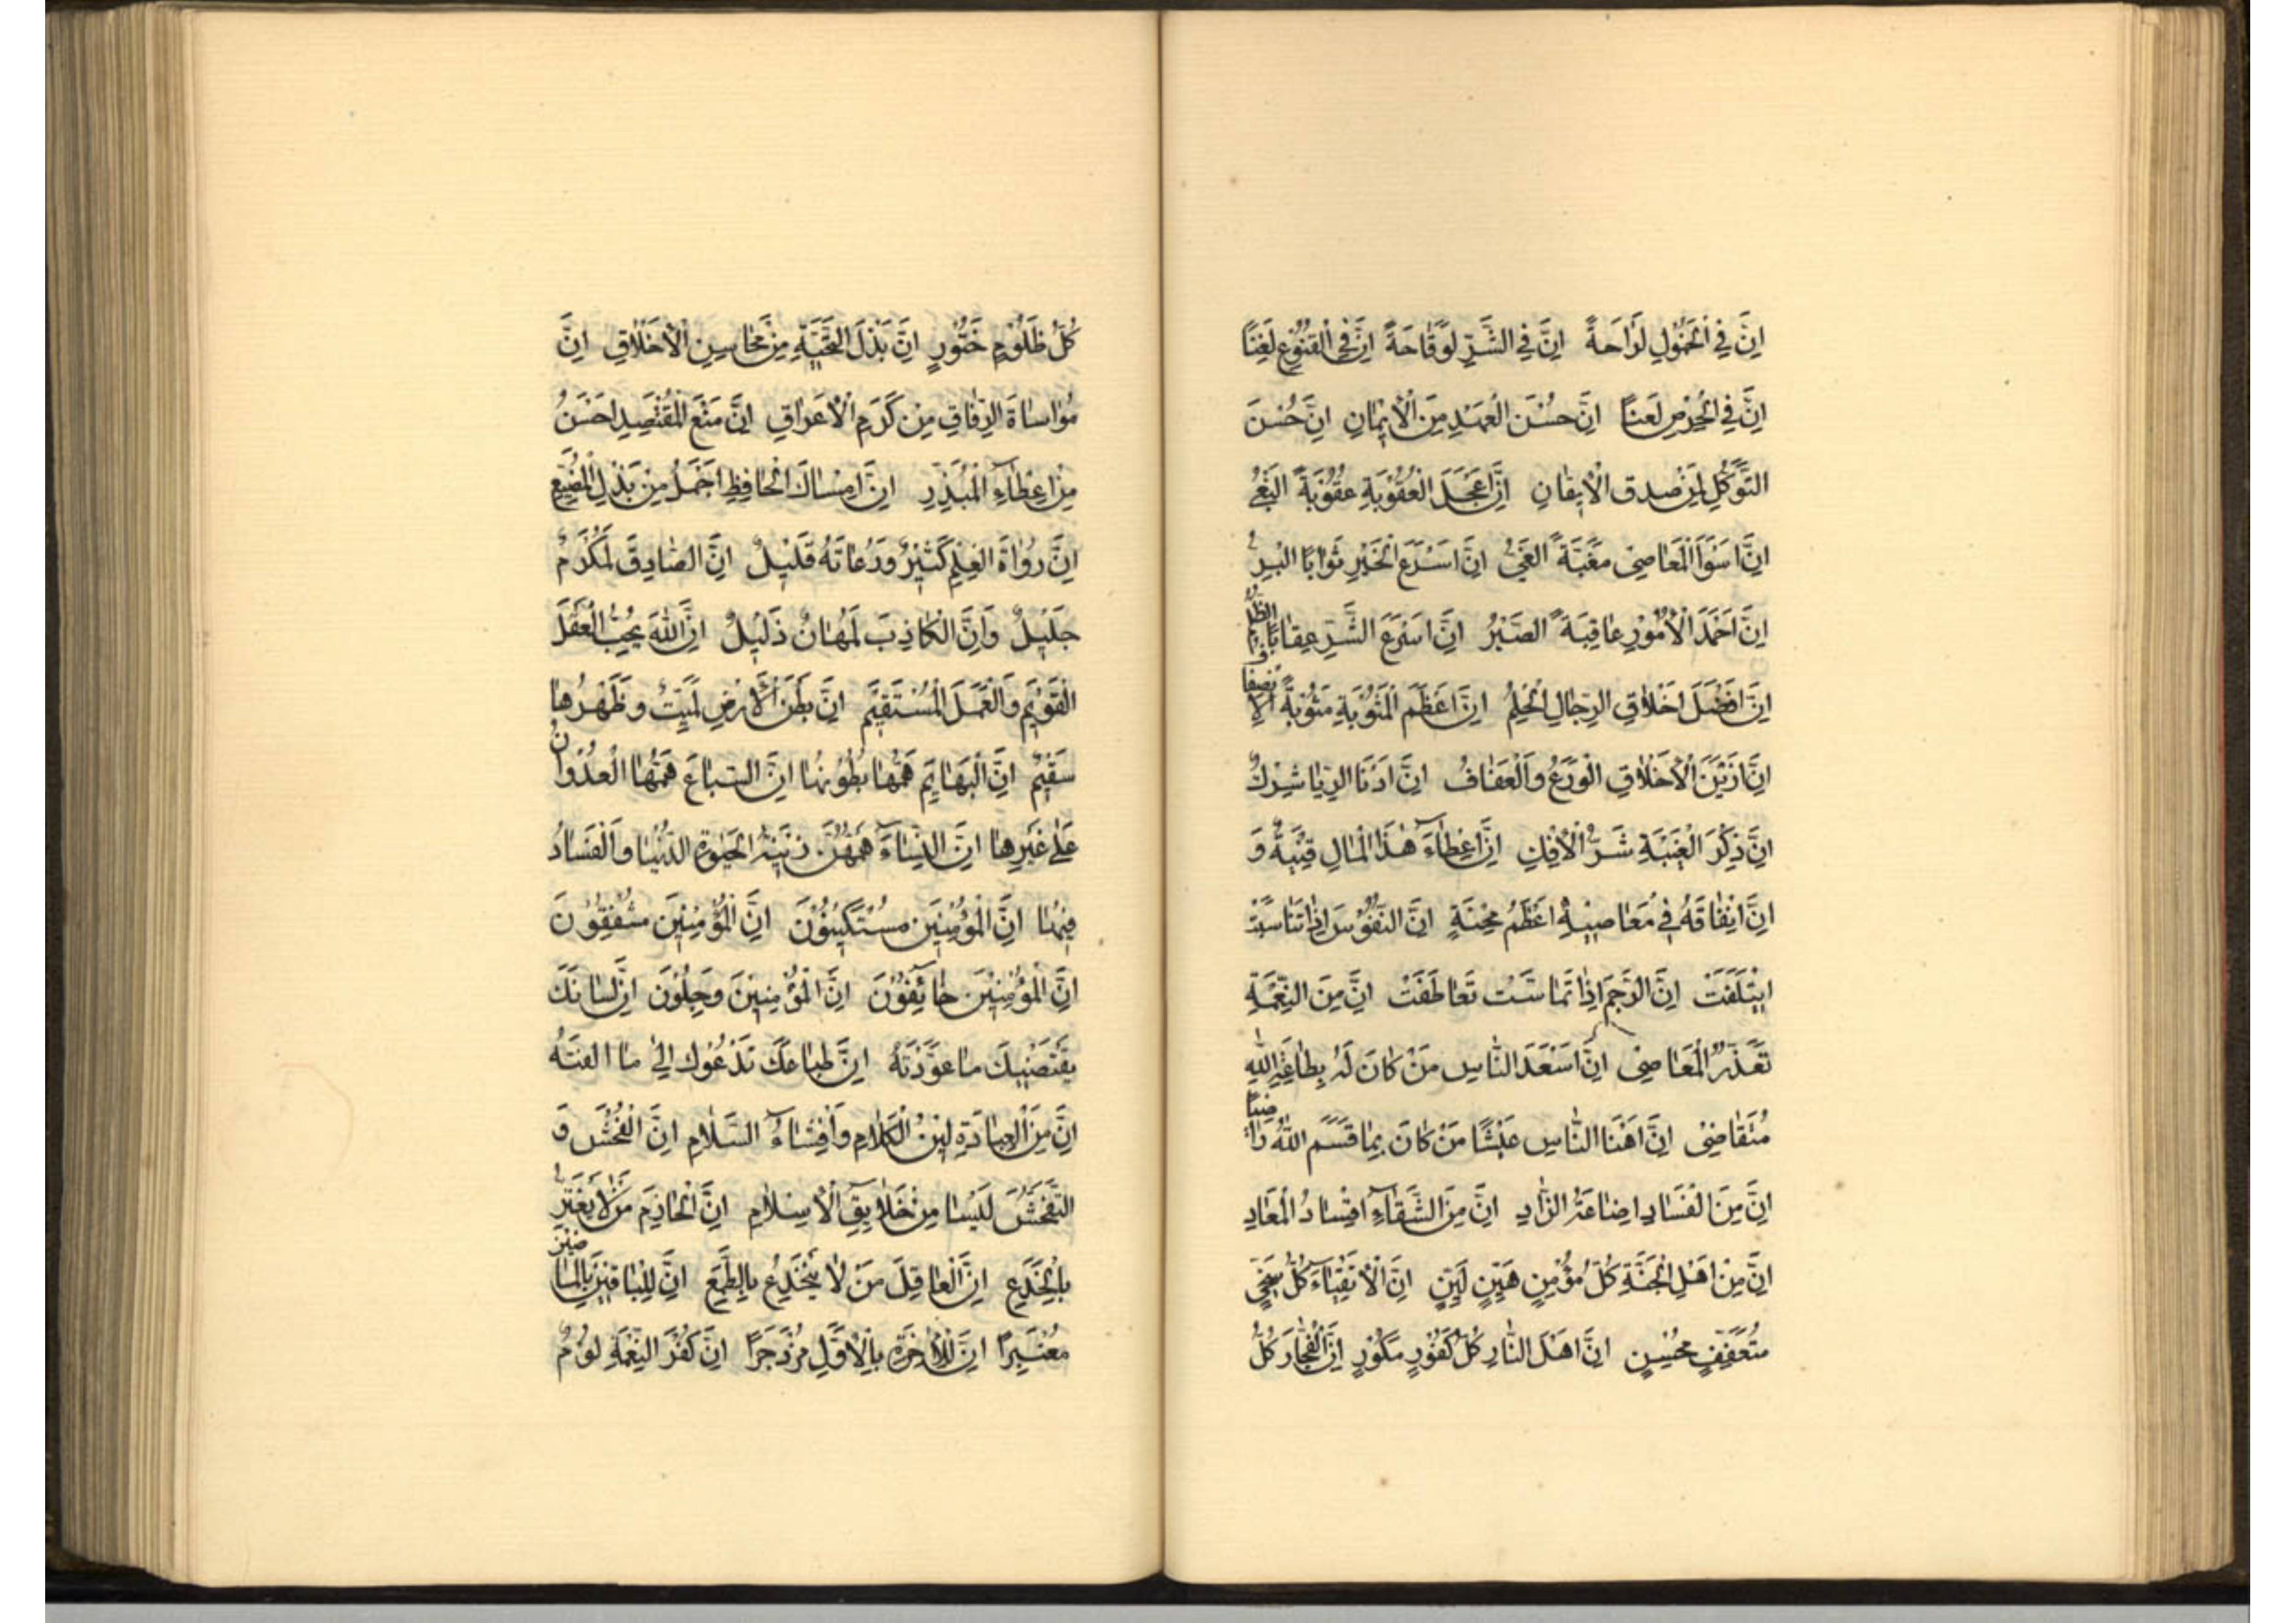 اِنَّ فِي الْخُمُولِ لَرَاحَةً اِنَّ فِي الشَّرِّ لَوَقَاحَةً اِنَّ فِي الْقُنُوعِ لَغِنًا
اِنَّ فِي الْحِرْصِ لَعَنَا اِنَّ حُسْنَ الْعَهْدِ مِنَ الْاِيمَانِ اِنَّ حُسْنَ
التَّوَكُّلِ لَمِنْ صِدقِ الْاِيقَانِ اِنَّ اَعْجَلَ الْعُقُوبَةِ عُقُوبَةً الْبَغْيُ
اِنَّ اَسْوَاَ الْمَعَاصِي مَغَبَّةً الْغَيُّ اِنَّ اَسْرَعَ الْخَيْرِ ثَوَابًا الْبِرُّ
اِنَّ اَحْمَدَ الْاُمُورِ عَاقِبَةً الصَّبْرُ اِنَّ اَسْرَعَ الشَّرِّ عِقَابًا الظُّلْمُ
اِنَّ اَفْضَلَ اَخْلَاقِ الرِّجَالِ الْحِلْمُ اِنَّ اَعْظَمَ الْمَثُوبَةِ مَثُوبَةً الْاِنْصَافُ
اِنَّ اَزْيَنَ الْاَخْلَاقِ الْوَرَعُ وَالْعَفَافُ اِنَّ اَدْنَا الرِّيَا شِرْكٌ
اِنَّ ذِكْرَ الْغِيْبَةِ شَرُّ الْاِفْكِ اِنَّ اِعْطَاءَ هٰذَا الْمَالِ قِنْيَةٌ وَ
اِنَّ اِنْفَاقَهُ فِي مَعَاصِيْهِ اَعْظَمُ مِحْنَةٍ اِنَّ النُّفُوْسَ اِذَا تَنَاسَبَتْ
اِيْتَلَفَتْ اِنَّ الرَّحِمَ اِذَا تَمَاسَّت تَعَاطَفَتْ اِنَّ مِنَ النِّعْمَةِ
تَعَذُّرُ الْمَعَاصِيْ اِنَّ اَسْعَدَ النَّاسِ مَنْ كَانَ لَهُ بِطَاعَةِ اللهِ
مُتَقَاضِيْ اِنَّ اَهْنَا النَّاسِ عَيْشًا مَنْ كَانَ بِمَا قَسَمَ اللهُ رَاضِيًا
اِنَّ مِنَ الْفَسَادِ اِضَاعَةُ الزَّادِ اِنَّ مِنَ الشَّقَاءِ اِفْسَادُ الْمَعَادِ
اِنَّ مِنْ اَهْلِ الْجَنَّةِ كُلُّ مُؤْمِنٍ هَيِّنٍ لَيِّنٍ اِنَّ الْاَتْقِيَاءَ كُلُّ سَخِيٍّ
مُتَعَفِّفٍ مُحْسِنٍ اِنَّ اَهْلَ النَّارِ كُلُّ كَفُوْرٍ مَكُوْرٍ اِنَّ الْفُجَّارَ كُلُّ
كُلُّ ظَلُوْمٍ خَتُّورٍ اِنَّ بَذْلَ التَّحِيَّةِ مِنْ مَحَاسِنِ الْاَخْلَاقِ اِنَّ
مُوَاسَاةَ الرِّفَاقِ مِنْ كَرَمِ الْاَعْرَاقِ اِنَّ مَنْعَ الْمُقْتَصِدِ اَحْسَنُ
مِنْ اِعْطَاءِ الْمُبَذِّرِ اِنَّ اِمْسَاكَ الْحَافِظِ اَجْمَلُ مِنْ بَذْلِ الْمُضَيِّعِ
اِنَّ رُوَاةَ الْعِلْمِ كَثِيْرٌ وَرُعَاتَهُ قَلِيْلٌ اِنَّ الصَّادِقَ لَمُكْرَمٌ
جَلِيْلٌ وَاِنَّ الْكَاذِبَ لَمُهَانٌ ذَلِيْلٌ اِنَّ اللهَ يُحِبُّ الْعَقْلَ
الْقَوِيْمَ وَالْعَمَلَ الْمُسْتَقِيْمَ اِنَّ بَطْنَ الْاَرْضِ لَمَيِّتٌ وَظَهْرُهَا
سَقِيْمٌ اِنَّ الْبَهَايِمَ هَمُّهَا بُطُوْنُهَا اِنَّ السِّبَاعَ هَمُّهَا الْعُدْوَانُ
عَلٰى غَيْرِهَا اِنَّ النِّسَاءَ هَمُّهُنَّ زِيْنَةُ الْحَيٰوةِ الدُّنْيَا وَالْفَسَادُ
فِيْهَا اِنَّ الْمُؤْمِنِيْنَ مُسْتَكِيْنُوْنَ اِنَّ الْمُؤْمِنِيْنَ مُشْفِقُوْنَ
اِنَّ الْمُؤْمِنِيْنَ خَائِفُوْنَ اِنَّ الْمُؤْمِنِيْنَ وَجِلُوْنَ اِنَّ لِسَانَكَ
يَقْتَضِيْكَ مَا عَوَّدْتَهُ اِنَّ طِبَاعَكَ تَدْعُوْكَ اِلٰى مَا اَلِفْتَهُ
اِنَّ مِنَ الْعِبَادَةِ لِيْنُ الْكَلَامِ وَاِفْشَاءُ السَّلَامِ اِنَّ الْفُحْشَ وَ
التَّفَحُّشَ لَيْسَا مِنْ خَلَايِقِ الْاِسْلَامِ اِنَّ الْحَازِمَ مَنْ لَا يَغْتَرُّ
بِالْخُدَعِ اِنَّ الْعَاقِلَ مَنْ لَا يَنْخَدِعُ بِالطَّمَعِ اِنَّ لِلْبَاقِيْنَ بِالْمَاضِيْنَ
مُعْتَبَرًا اِنَّ لِلْاٰخِرَةِ بِالْاَوَّلِ مُزْدَجَرًا اِنَّ كُفْرَ النِّعْمَةِ لُؤْمٌ